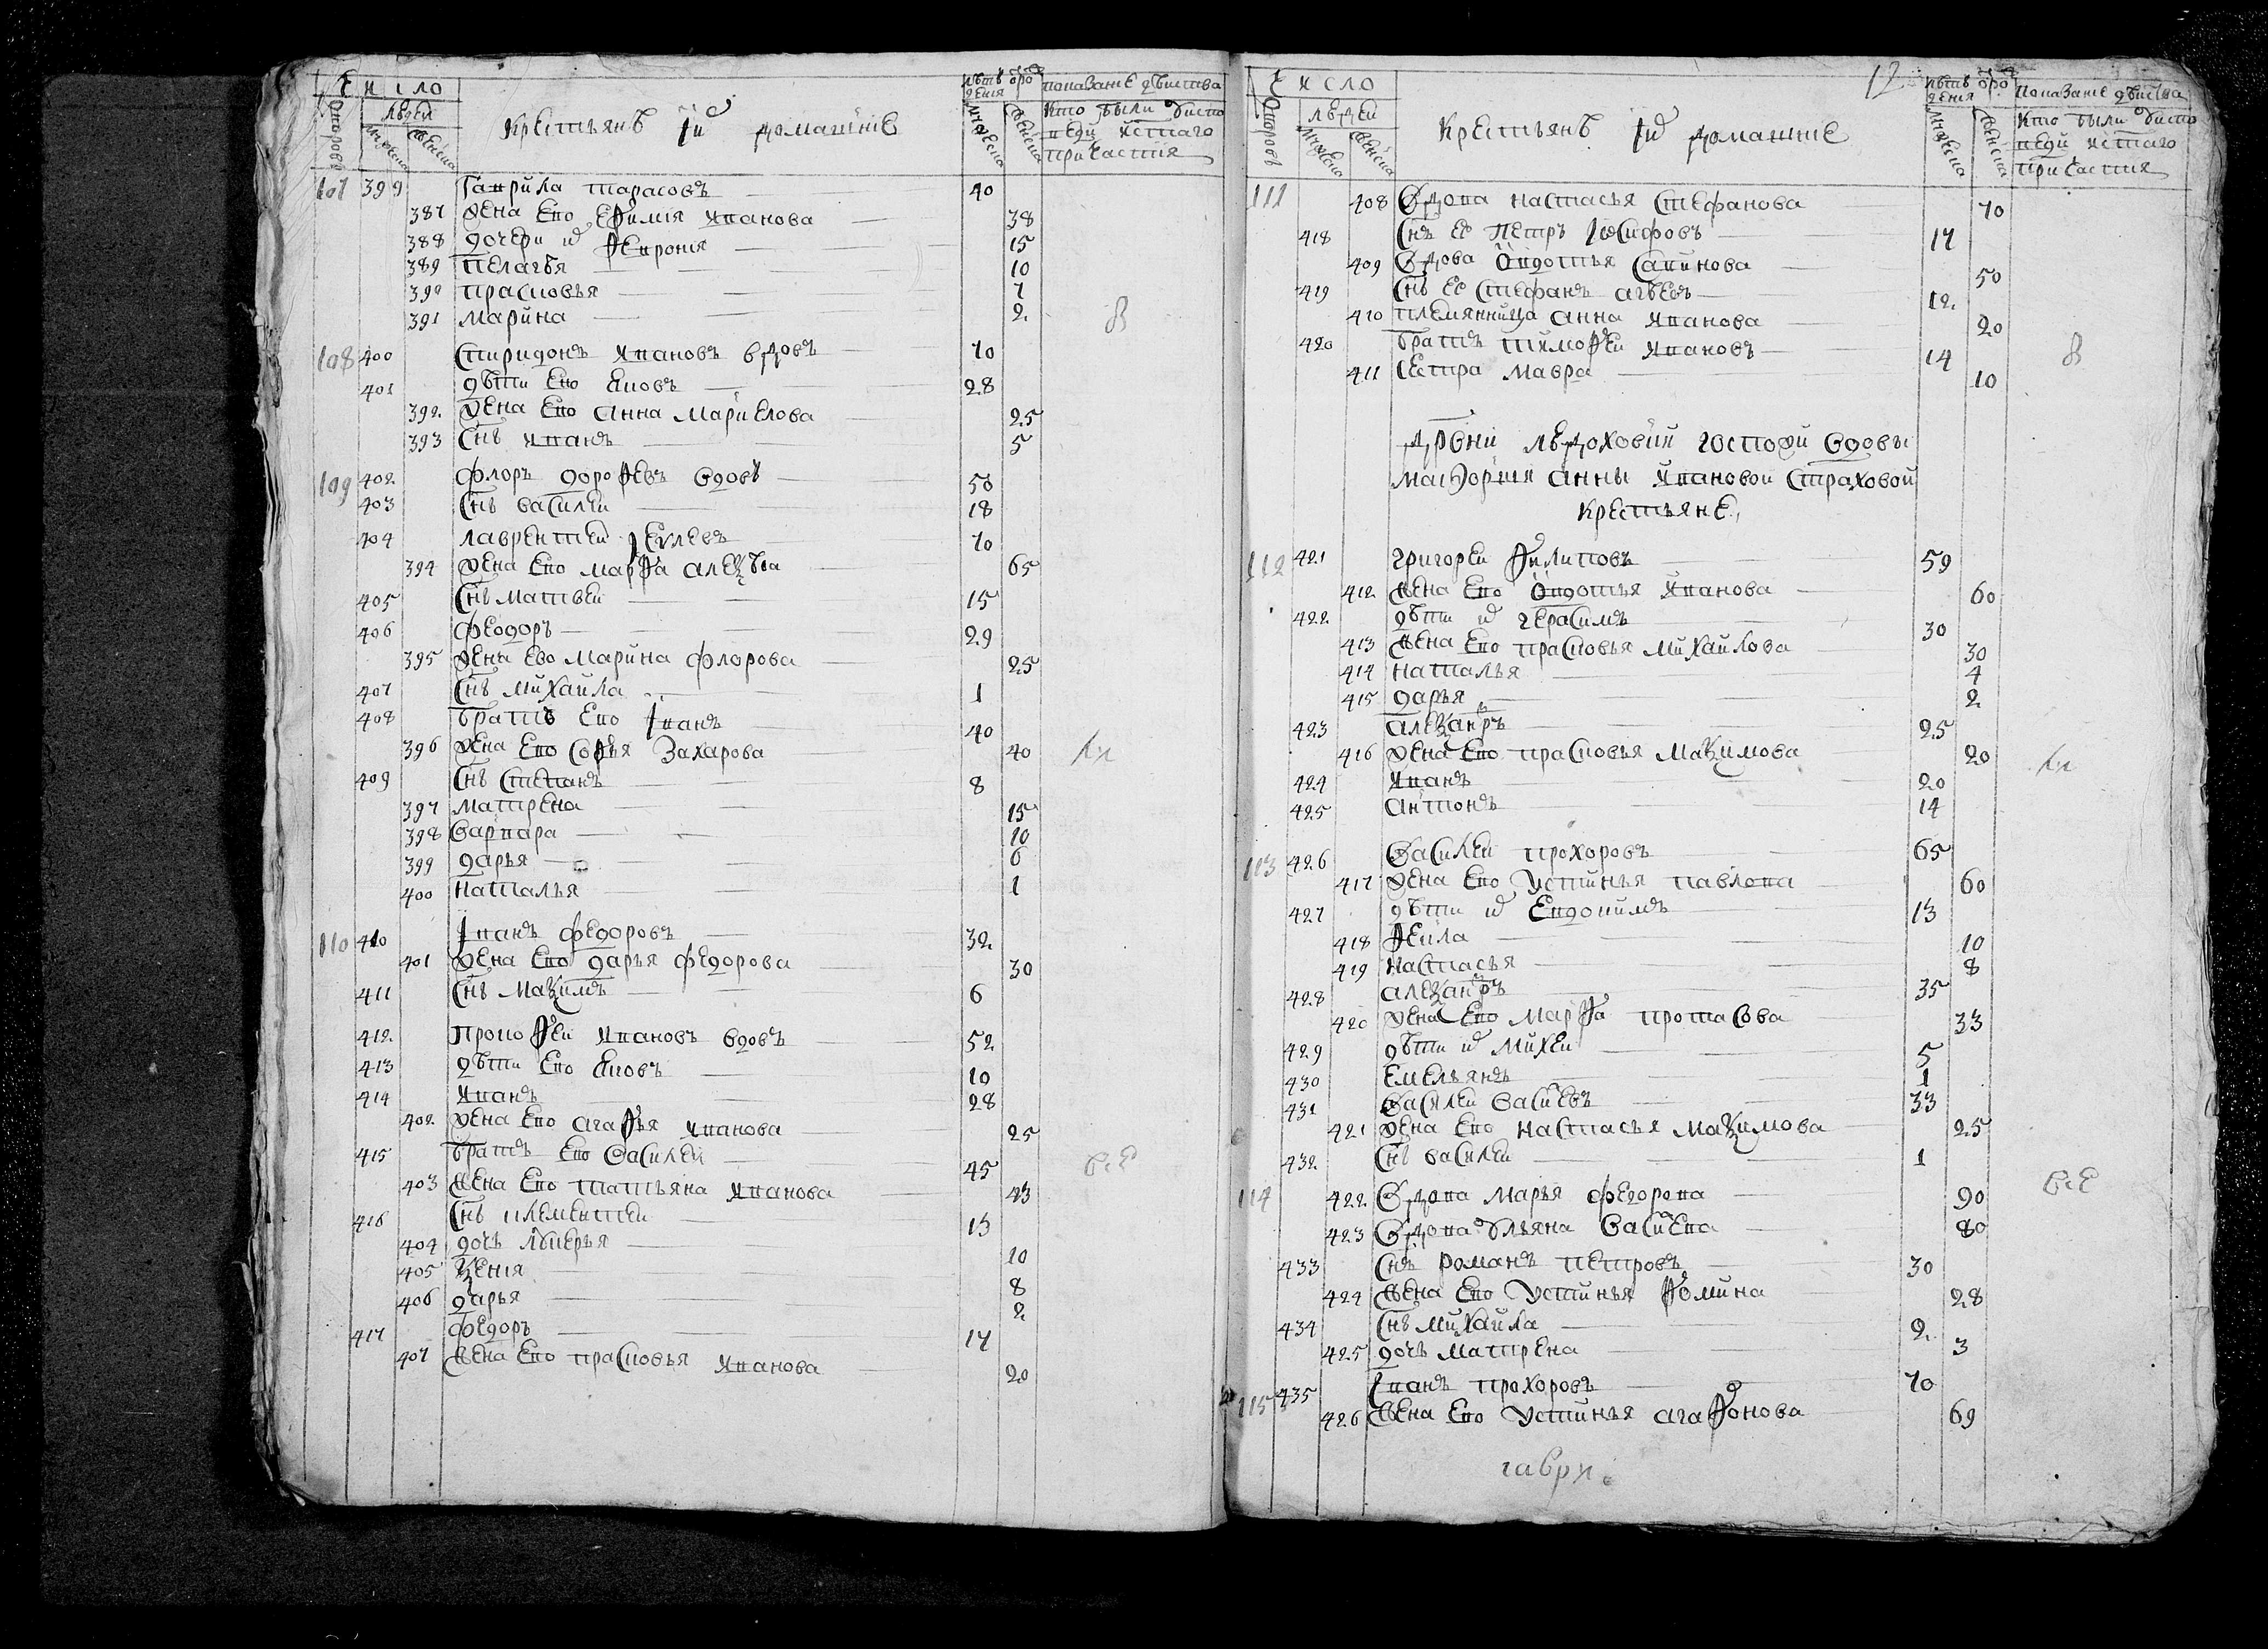 Число
людей
Дворовъ
мужеска
женска
Крестьянѣ ихъ домашние
лѣтъ от рождения
мужеска
женска
показание дѣйства
кто были у исповеди и святаго причастия
107 399 Гаврила Тарасовъ 40
387 Жена Ево Ефимія Иванова 38
388 дочери их Феврония 15
389 Пелагѣя 10
390 прасковья 7
391 марина 2
108 400 Спиридонъ Ивановъ вдовъ 70
401 дѣти Ево Яковъ 28
392 Жена Ево Анна Маркелова 25
393 Снъ Иванъ 5
109 402 Флоръ дорофѣевъ вдовъ 50
403 Снъ василеи 18
404 лаврентеи Иевлевъ 70
394 Жена Ево марфа алеѯѣва 65
405 Снъ матвеи 15
406 Феодоръ 29
395 Жена Ево Марина флорова 25
407 Снъ михаила 1
408 братъ Ево Іванъ 40
396 Жена Ево Софья Захарова 40
409 Снъ Степанъ 8
397 матрена 15
398 варвара 10
399 дарья 6
400 наталья 1
110 410 Іванъ Федоровъ 32
401 Жена Ево дарья Федорова 30
411 Снъ Маѯимъ 6
412 Прокофеи Ивановъ вдовъ 52
413 дѣти Ево Яковъ 10
414 Иванъ 28
402 Жена Ево агафья Иванова 25
415 братъ Ево Василеи 45
403 Жена Ево татьяна Иванова 43
416 Снъ клементеи 13
404 дочь лукерья 10
405 Ѯения 8
406 дарья 2
417 Федоръ 17
407 Жена Ево прасковья Иванова 20
12
Число
людей
Дворовъ
мужеска
женска
Крестьянѣ их домашние
лѣтъ от рождения
мужеска
женска
показание дѣйства
кто были у исповеди и святаго причастия
111 408 Вдова настасья Стефанова 70
418 Снъ Ее Петръ Іосифовъ 17
409 Вдова Овдотья Савинова 50
419 Снъ Ее Стефанъ агѣевъ 12
410 племянница анна Иванова 20
420 братъ тимофеи Ивановъ 14
411 Сестра мавра 10
дрвни лѣдоховки госпожи вдовы
маиорши анны Ивановой Страховой
крестьяне
112 421 григореи Филиповъ 59
412 Жена Ево Овдотья Иванова 60
422 дѣти их герасимъ 30
413 Жена Ево прасковья михаилова 30
414 наталья 4
415 дарья 2
423 алеѯанръ 25
416 Жена Ево прасковья маѯимова 20
424 Иванъ 20
425 антонъ 14
113 426 Василеи прохоровъ 65
417 Жена Ево Устинья павлова 60
427 дѣти их Евдокимъ 13
418 Фекла 10
419 настасья 8
428 алеѯанръ 35
420 Жена Ево марфа протасова 33
429 дѣти их михеи 5
430 Емельянъ 1
431 Василеи Василевъ 33
421 Жена Ево настасья маѯимова 25
432 Снъ василеи 1
114 422 Вдова марья Федорова 90
423 Вдова ульяна Васильева 80
433 Снъ романъ петровъ 30
424 Жена Ево Устинья Фомина 28
434 Снъ михаила 2
425 дочь матрена 3
115 435 Іванъ прохоровъ 70
426 Жена Ево Устинья агафонова 69
гаври